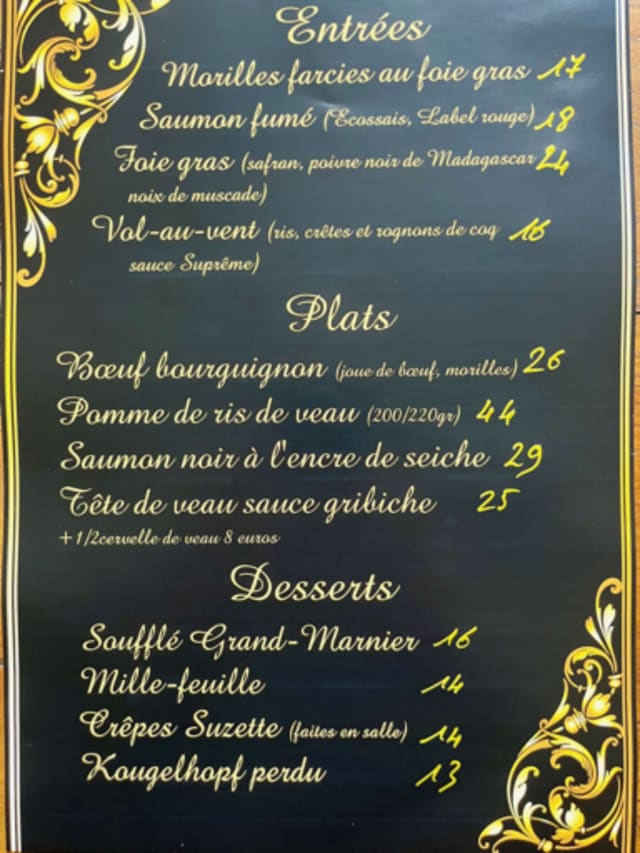 Entrées
Morilles farcies au foie gras 17
Saumon fumé (Ecossais, Label rouge) 18
Foie gras (safran, poivre noir de Madagascar 24
noix de muscade)
Vol-au-vent (ris, crêtes et rognons de coq 16
sauce Suprême)
Plats
Bœuf bourguignon (joue de bœuf, morilles) 26
Pomme de ris de veau (200/220gr) 44
Saumon noir à l'encre de seiche 29
Tête de veau sauce gribiche 25
+1/2cervelle de veau 8 euros
Desserts
Soufflé Grand-Marnier 16
Mille-feuille 14
Crêpes Suzette (faites en salle) 14
Kougelhopf perdu 13